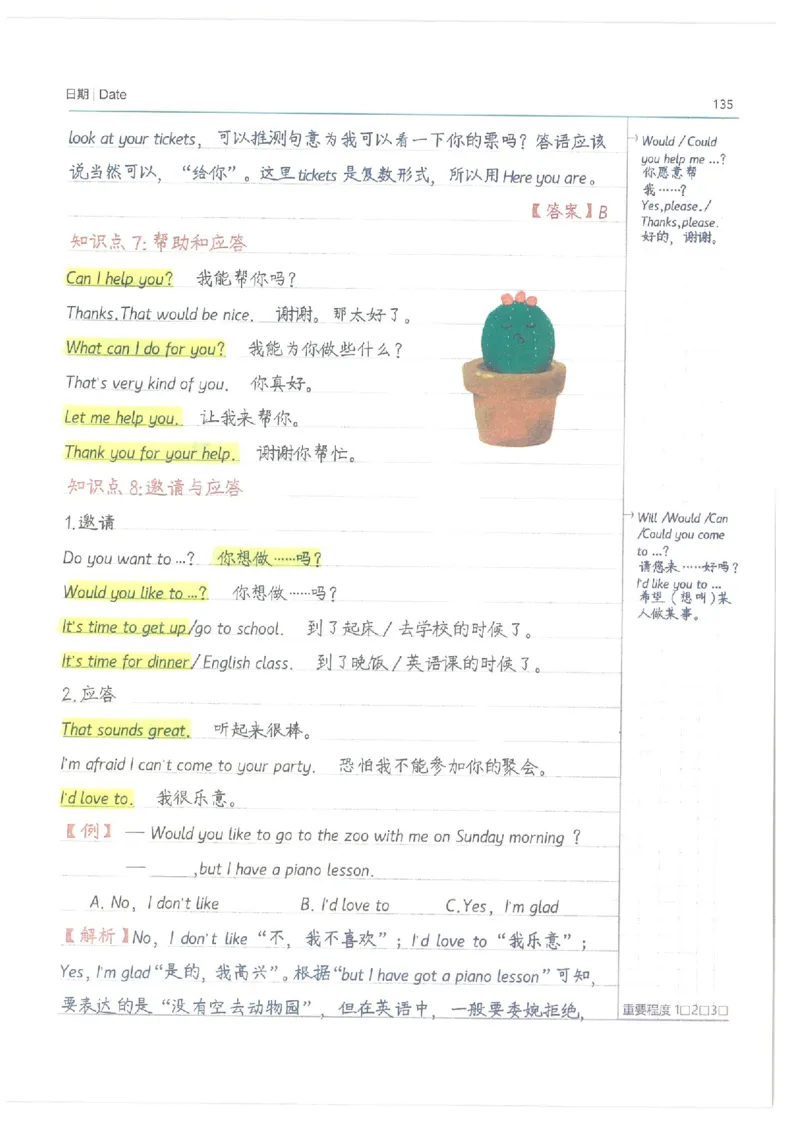 日期 | Date
135
look at your tickets，可以推测句意为我可以看一下你的票吗？答语应该
说当然可以，“给你”。这里tickets是复数形式，所以用Here you are。
【答案】B
知识点7：帮助和应答
Can I help you? 我能帮你吗？
Thanks.That would be nice. 谢谢。那太好了。
What can I do for you? 我能为你做些什么？
That's very kind of you. 你真好。
Let me help you. 让我来帮你。
Thank you for your help. 谢谢你帮忙。
知识点8：邀请与应答
1.邀请
Do you want to …? 你想做……吗？
Would you like to …? 你想做……吗？
It's time to get up/go to school. 到了起床/去学校的时候了。
It's time for dinner/English class. 到了晚饭/英语课的时候了。
2.应答
That sounds great. 听起来很棒。
I'm afraid I can't come to your party. 恐怕我不能参加你的聚会。
I'd love to. 我很乐意。
【例】 — Would you like to go to the zoo with me on Sunday morning ?
— _____,but I have a piano lesson.
A. No, I don't like B. I'd love to C.Yes, I'm glad
【解析】No, I don't like “不，我不喜欢”；I'd love to “我乐意”；
Yes, I'm glad“是的，我高兴”。根据“but I have got a piano lesson”可知，
要表达的是“没有空去动物园”，但在英语中，一般要委婉拒绝，
→ Would / Could
you help me …?
你愿意帮
我……?
Yes,please./
Thanks,please.
好的，谢谢。
→ Will /Would /Can
/Could you come
to …?
请您来……好吗？
I'd like you to …
希望（想叫）某
人做某事。
重要程度 1□2□3□